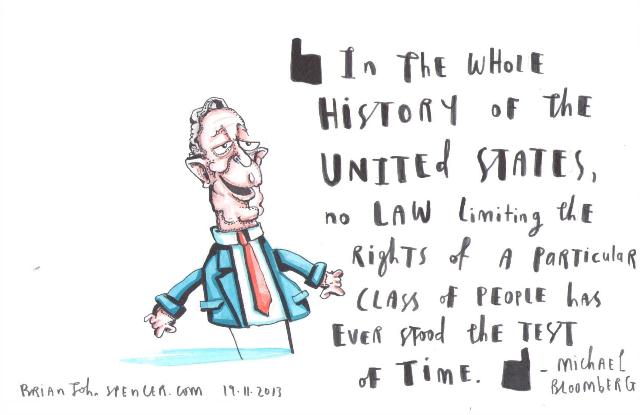 In The WHOLE
HISTORY OF the
UNITEd STATES,
no LAW limiting the
Rights of A PARTICULAR
CLASS of PEOPLE has
EVER stood the TEST
of TIME.
- MICHAEL
BLOOMBERG
BRIAN John SPENCER.COM 19.11.2013